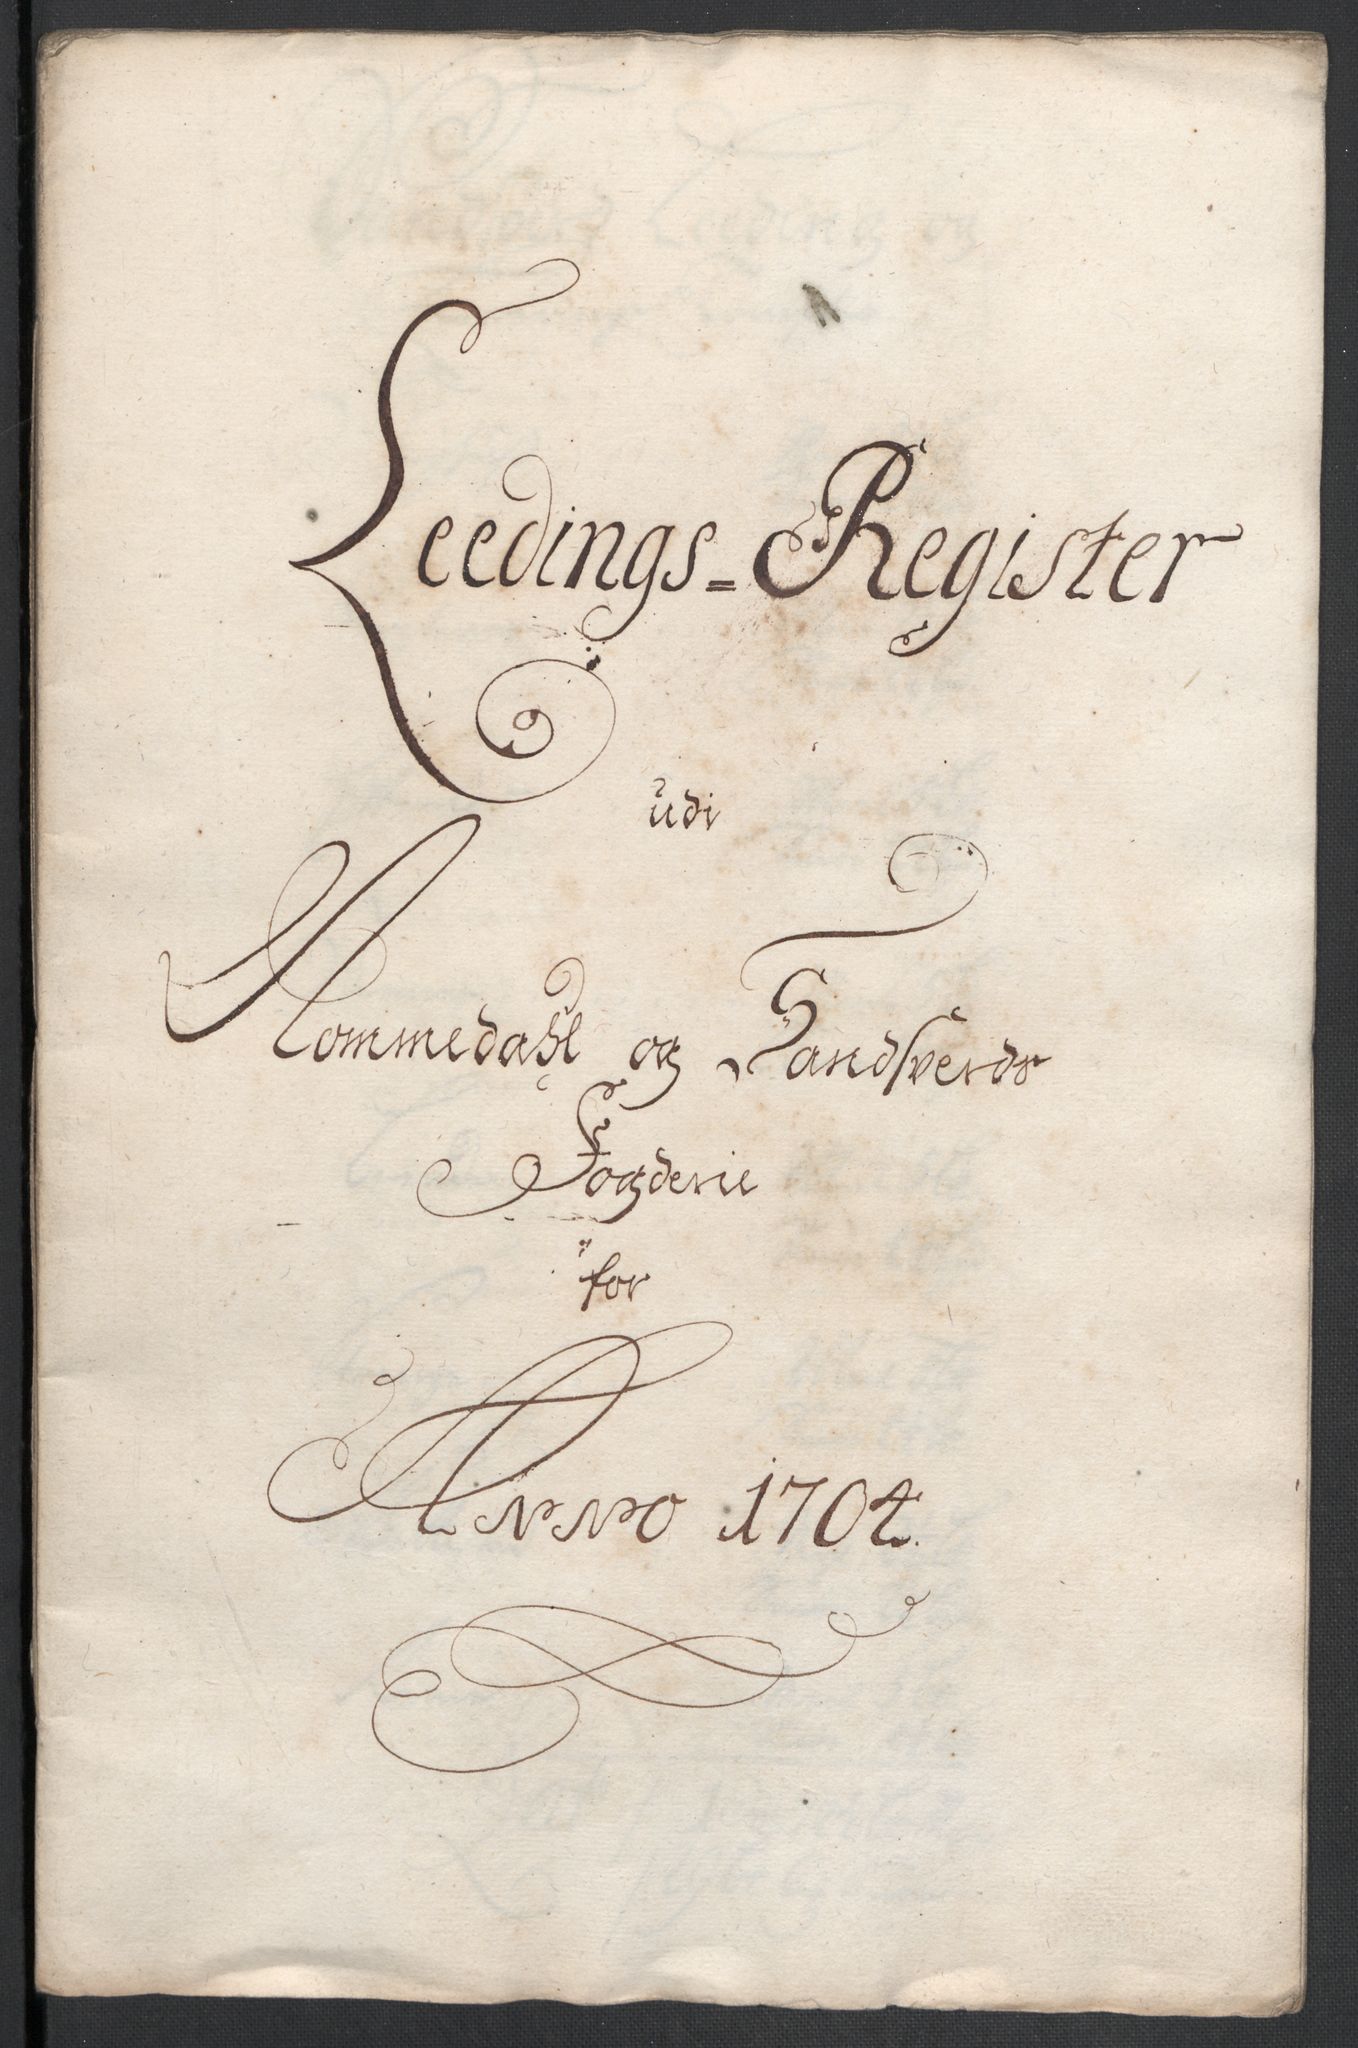 Leedings=Register
udi
Nommedahl og Sandsverds
Fogderie
for
Anno 1704.